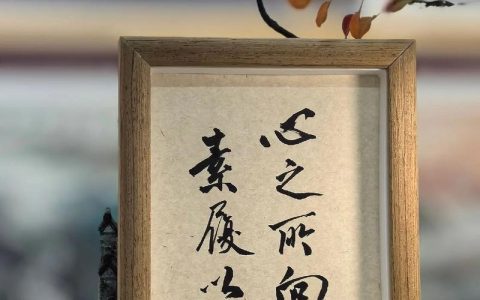 心之所向
素履以